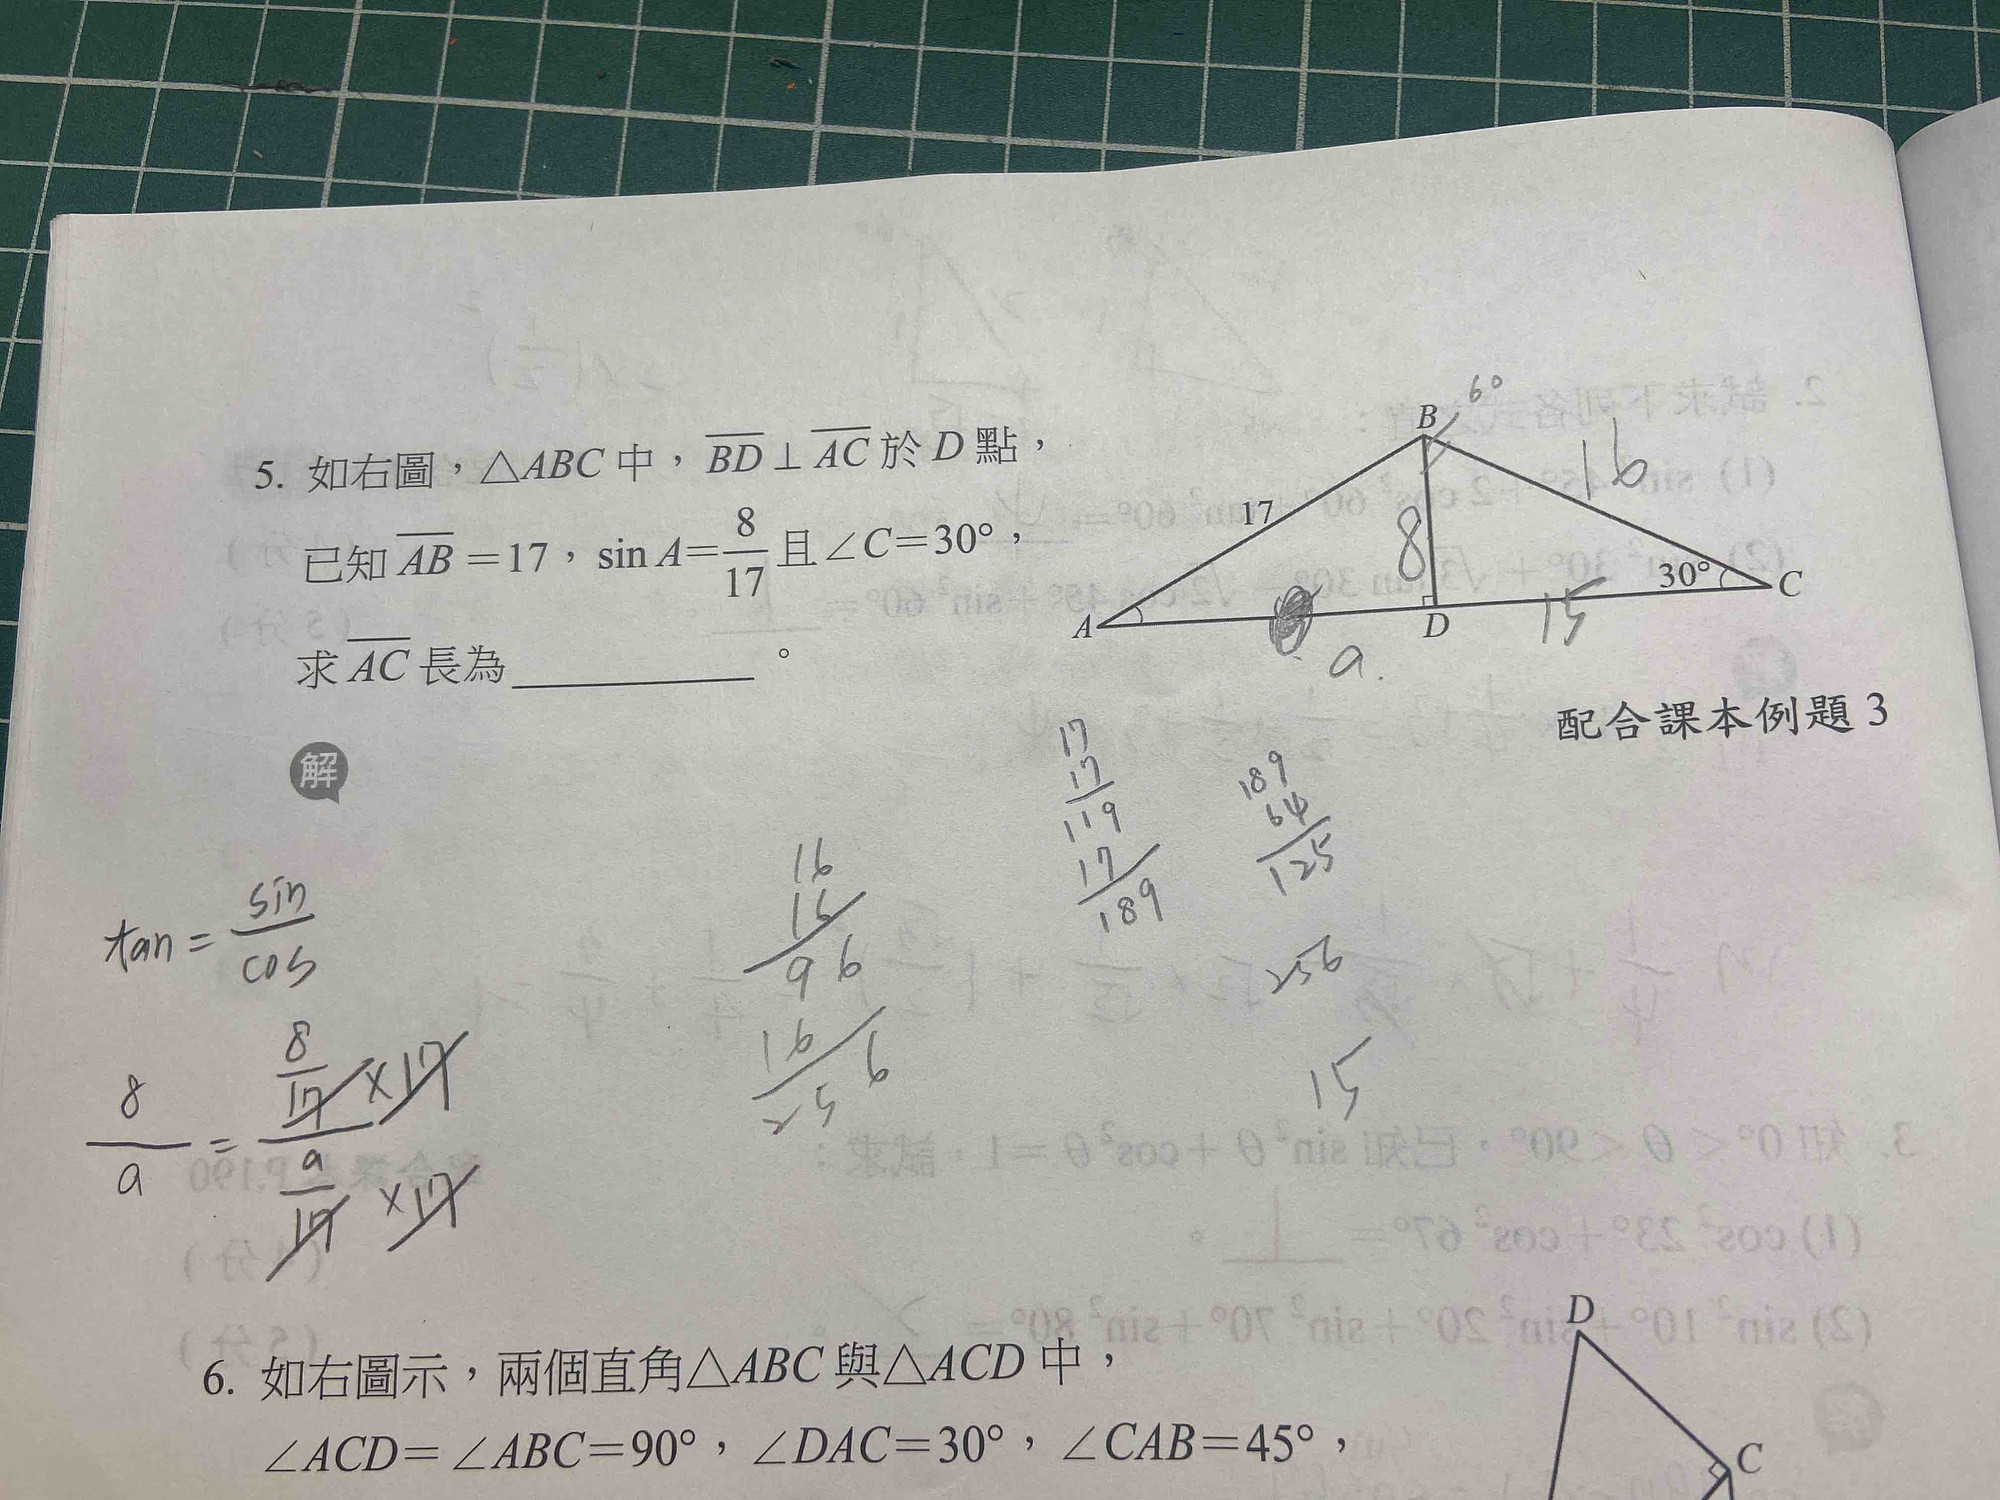 5. 如右圖，△ABC 中，BD⊥AC 於 D 點，
已知 AB=17，sin A=8/17 且∠C=30°，
求 AC 長為________。
B
60
16
17
8
30°
C
A
D
15
a
配合課本例題 3
解
17
17
119
17
189
189
64
125
256
15
16
16
96
16
256
tan = sin/cos
8/a = 8/17 ×17 / a/17 ×17
6. 如右圖示，兩個直角△ABC 與△ACD 中，
∠ACD=∠ABC=90°，∠DAC=30°，∠CAB=45°，
D
C